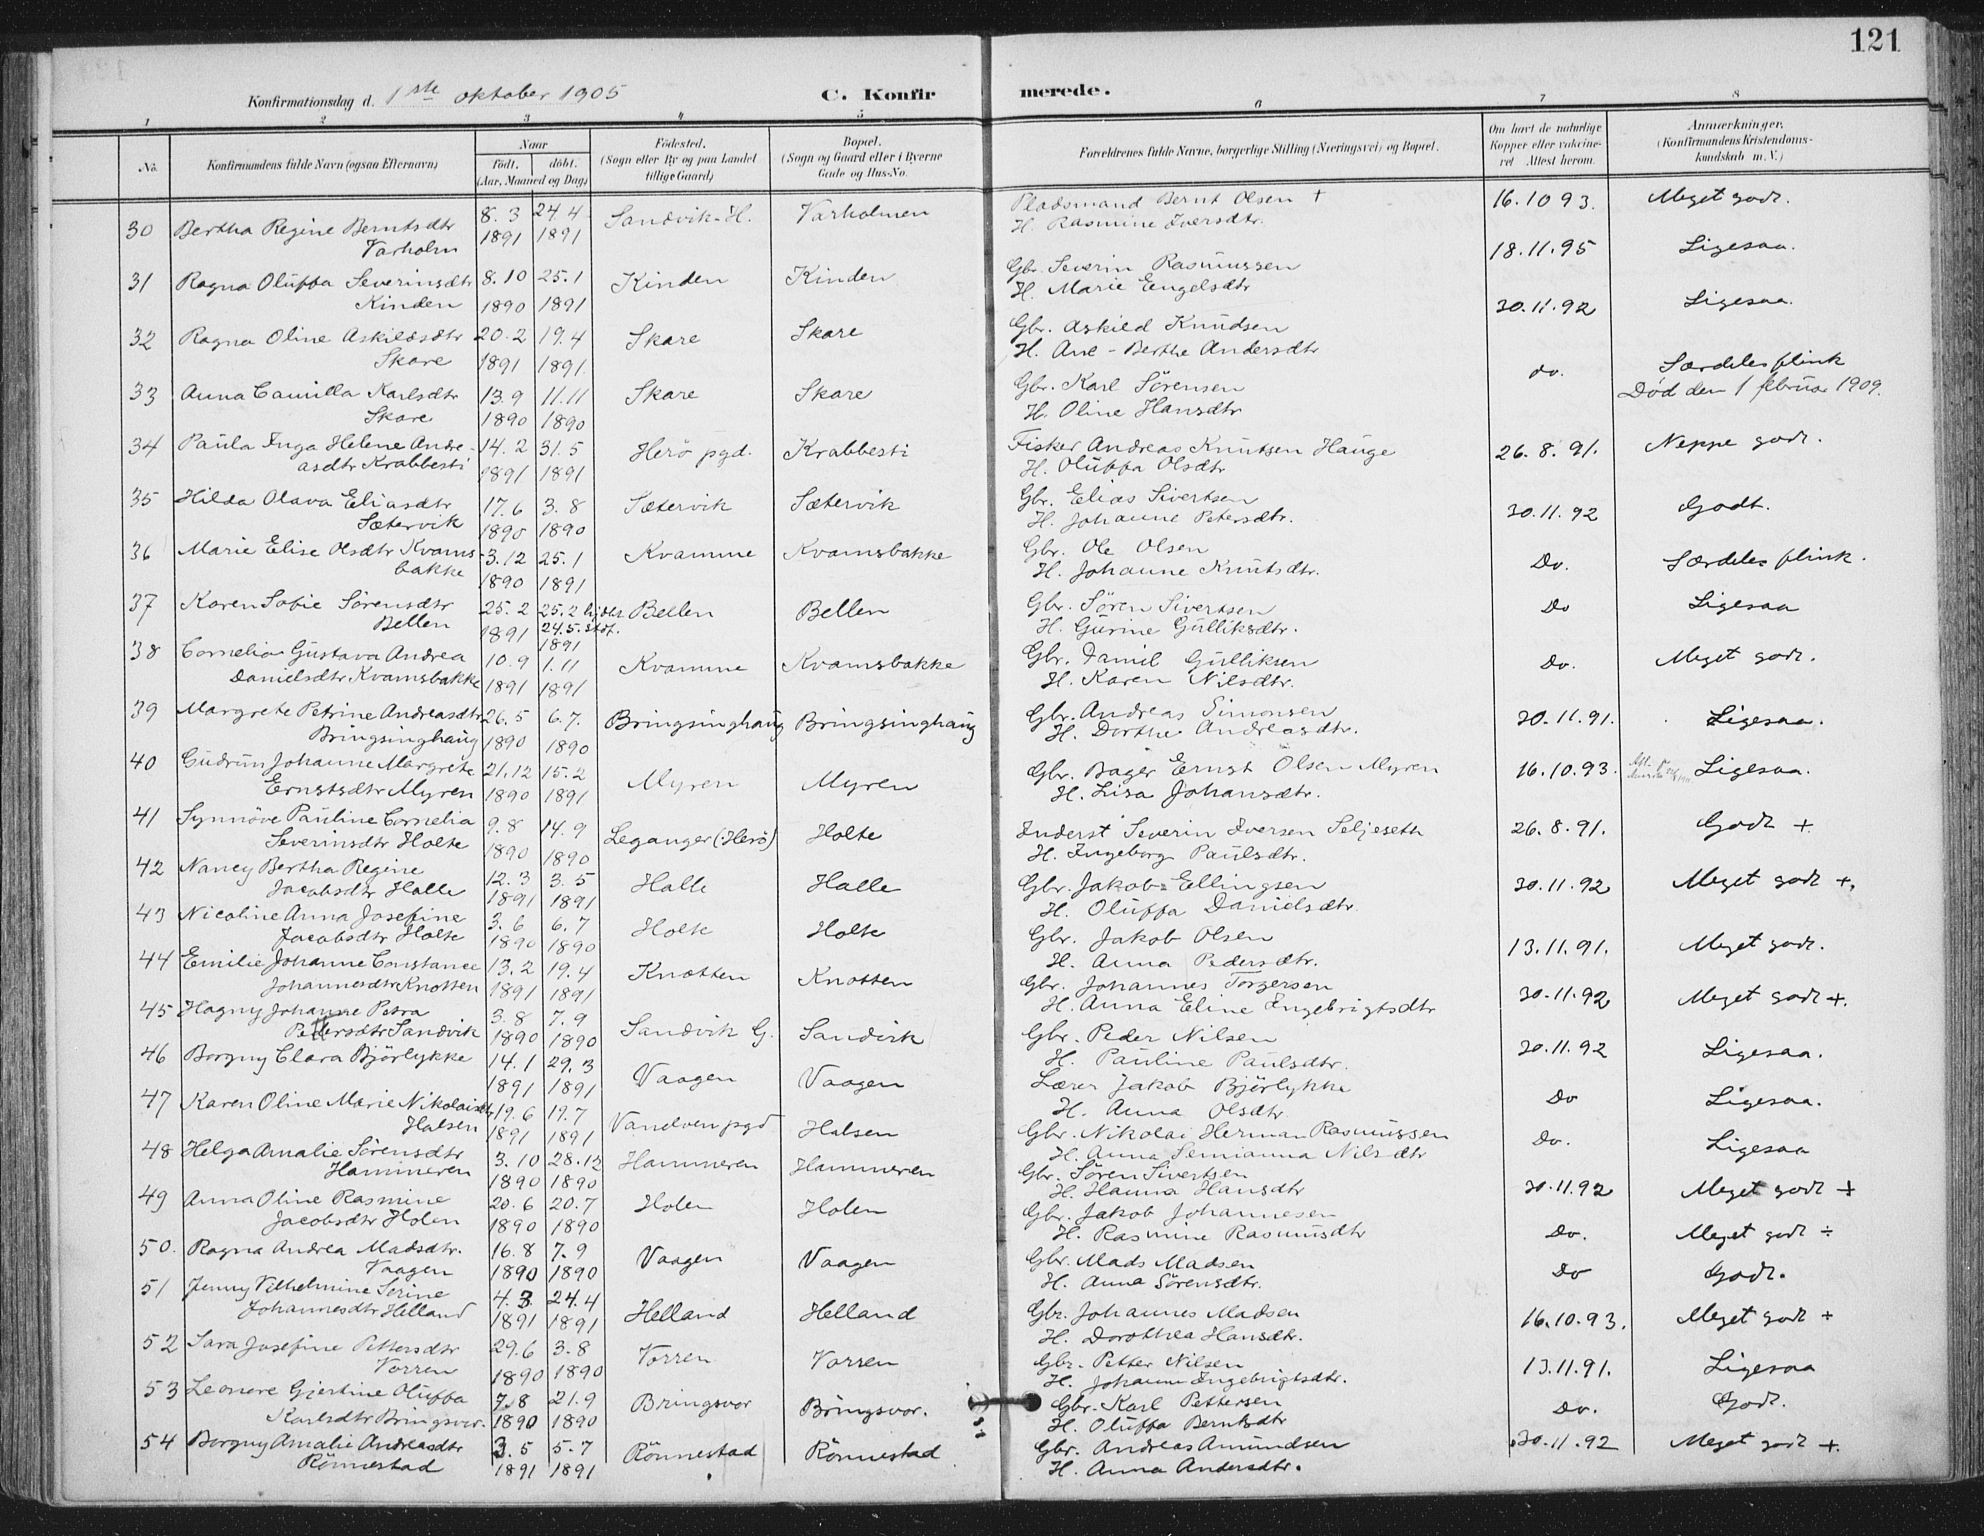 121
Konfirmationsdag d. 1ste oktober 1905 C. Konfirmerede.
1 2 3 4 5 6 7 8
No. Konfirmandens fulde Navn (ogsaa Efternavn) Naar Födt. döbt. (Aar, Maaned og Dag) Födested. (Sogn eller By og paa Landet tillige Gaard) Bopæl. (Sogn og Gaard eller i Byerne Gade og Hus-No. Forældrenes fulde Navne, borgerlige Stilling (Næringsvei) og Bopæl. Om havt de naturlige Kopper eller vaccineret Attest herom. Anmærkninger. (Konfirmandens Kristendomskundskab m. V.)
30 Bertha Regine Berntsdtr 8.3 24.4 Sandvik-H. Varholmen Pladsmand Bernt Olsen + 16.10 93. Meget godt.
Varholm 1891 1891 H. Rasmine Iversdtr.
31 Ragna Oluffa Severinsdtr 8.10 25.1 Kinden Kinden Gbr. Severin Rasmussen 18.11.95 Ligesaa.
Kinden 1890 1891 H. Marie Engelsdtr
32 Ragna Oline Askildsdtr 20.2 19.4 Skare Skare Gbr. Askild Knudsen 30.11.92 Ligesaa.
Skare 1891 1891 H. Ane-Berthe Andersdtr
33 Anna Camilla Karlsdtr 13.9 11.11 Skare Skare Gbr. Karl Sörensen do. Særdeles flink
Skare 1890 1890 H. Oline Hansdtr Död den 1 februar 1909.
34 Paula Inga Helene Andre- 14.2 31.5 Herö pgd. Krabbesti Fisker Andreas Knutsen Hauge 26.8.91. Neppe godt.
asdtr Krabbesti 1891 1891 H. Oluffa Olsdtr
35 Hilda Olava Eliasdtr 17.6 3.8 Sætervik Sætervik Gbr. Elias Sivertsen 30.11.92 Godt.
Sætervik 1890 1890 H. Johanne Petersdtr.
36 Marie Elise Olsdtr Kvams- 3.12 25.1 Kvamme Kvamsbakke Gbr. Ole Olsen Do. Særdeles flink.
bakke 1890 1891 H. Johanne Knutsdtr.
37 Karen Sofie Sörensdtr 25.2 25.2 hjdbt Bellen Bellen Gbr. Sören Sivertsen Do Ligesaa
Bellen 1891 24.5. stdf. 1891 H. Gurine Gulliksdtr.
38 Cornelia Gustava Andrea 10.9 1.11 Kvamme Kvamsbakke Gbr. Daniel Gulliksen Do. Meget godt.
Danielsdtr. Kvamsbakke 1891 1891 H. Karen Nilsdtr.
39 Margrete Petrine Andreasdtr 26.5 6.7. Bringsinghaug Bringsinghaug Gbr. Andreas Simonsen 30.11.91. Ligesaa.
Bringsinghaug 1890 1890 H. Dorthe Andreasdtr.
40 Gudrun Johanne Margrete 21.12 15.2 Myren Myren Gbr. Bager Ernst Olsen Myren 16.10.93. Ligesaa.
Ernstsdtr Myren 1890 1891 H. Lisa Johansdtr.
41 Synnöve Pauline Cornelia 9.8 14.9 Leganger (Herö) Holte Inderst Severin Iversen Seljeseth 26.8.91. Godt +
Severinsdtr Holte 1890 1890 H. Ingeborg Paulsdtr.
42 Nancy Bertha Regine 12.3 3.5 Halle Halle Gbr. Jakob Ellingsen 30.11.92 Meget godt +.
Jacobsdtr Halle 1891 1891 H. Oluffa Danielsdtr
43 Nicoline Anna Josefine 3.6 6.7 Holte Holte Gbr. Jakob Olsen 13.11.91. Meget godt.
Jacobsdtr Holte 1890 1890 H. Anna Pedersdtr.
44 Emilie Johanne Constance 13.2 19.4 Knotten Knotten Gbr. Johannes Torgersen 30.11.92 Meget godt +.
Johannesdtr Knotten 1891 1891 H. Anna Eline Engebrigtsdtr
45 Hagny Johanne Petra 3.8 7.9 Sandvik G. Sandvik Gbr. Peder Nilsen 30.11.92 Ligesaa.
Pettersdtr Sandvik 1890 1890 H. Pauline Paulsdtr.
46 Borgny Clara Björlykke 14.1 29.3 Vaagen Vaagen Lærer Jakob Björlykke Do Ligesaa.
1891 1891 H. Anna Olsdtr
47 Karen Oline Marie Nikolaisdtr 19.6 19.7 Vandven pgd Halsen Gbr. Nikolai Herman Rasmussen Do. Ligesaa
Halsen 1891 1891 H. Anna Semianna Nilsdtr
48 Helga Amalie Sörensdtr 3.10 28.12 Hammeren Hammeren Gbr. Sören Sivertsen 30.11.92 Meget godt +
Hammeren 1890 1890 H. Hanna Hansdtr
49 Anna Oline Rasmine 20.6 20.7 Holen Holen Gbr. Jakob Johannesen Do. Meget godt ÷
Jacobsdtr Holen 1890 1890 H. Rasmine Rasmusdtr
50. Ragna Andrea Madsdtr. 16.8 7.9 Vaagen Vaagen Gbr. Mads Madsen Do Godt.
Vaagen 1890 1890 H. Anna Sörensdtr.
51 Jenny Vilhelmine Serine 4.3 24.4 Helland Helland Gbr. Johannes Madsen 16.10.93. Meget godt +
Johannesdtr Helland 1891 1891 H. Dorothea Hansdtr.
52 Sara Josefine Pettersdtr 29.6 3.8 Vorren Vorren Gbr. Petter Nilsen 13.11.91. Ligesaa
Vorren 1890 1890 H. Johanne Ingebrigtsdtr.
53 Leonore Gjertine Oluffa 7.8 21.9 Bringsvor Bringsvor. Gbr. Karl Pettersen Do. Godt.
Karlsdtr Bringsvor. 1890 1890 H. Oluffa Berntsdtr
54 Borgny Amalie Andreasdtr 3.5 5.7 Rönnestad Rönnestad Gbr. Andreas Amundsen 30.11.92 Meget godt +.
Rönnestad 1891 1891 H. Anna Andersdtr.